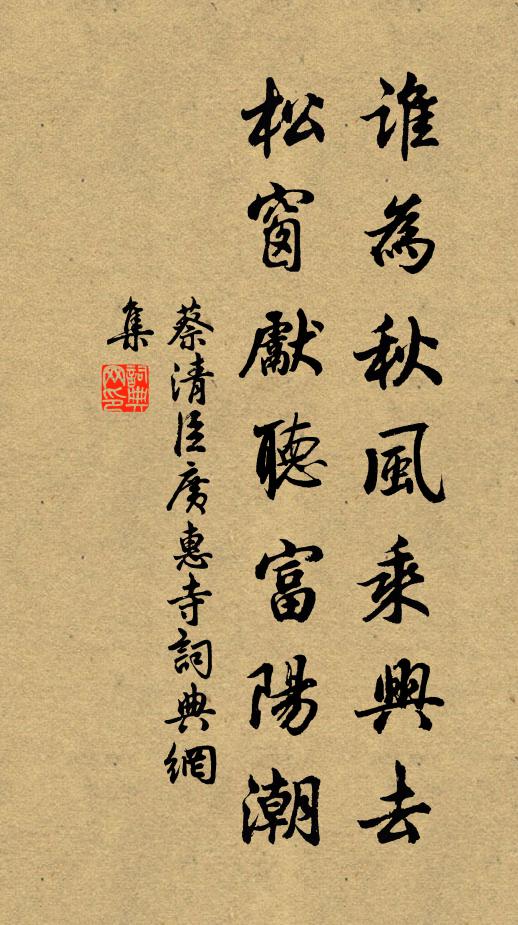 誰為秋風乘興去
松窗獻聽富陽潮
蔡清臣廣惠寺詞典網
集
詞典網印